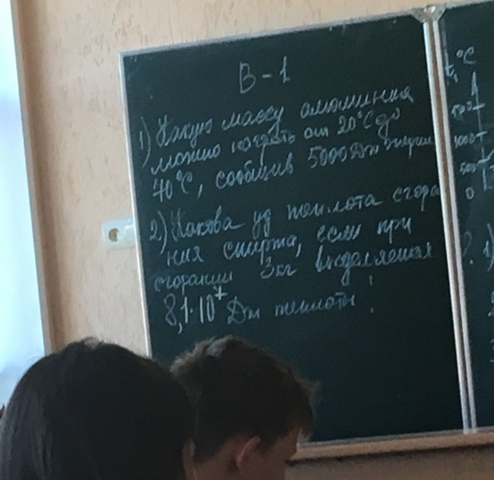 В-1
1) Какую массу алюминия
можно нагреть от 20°С до
40°С, сообщив 5000 Дж энергии
2) Какова уд теплота сгора
ния спирта, если при
сгорании 3кг выделяется
8,1·10⁷ Дж теплоты!
t,°C
0